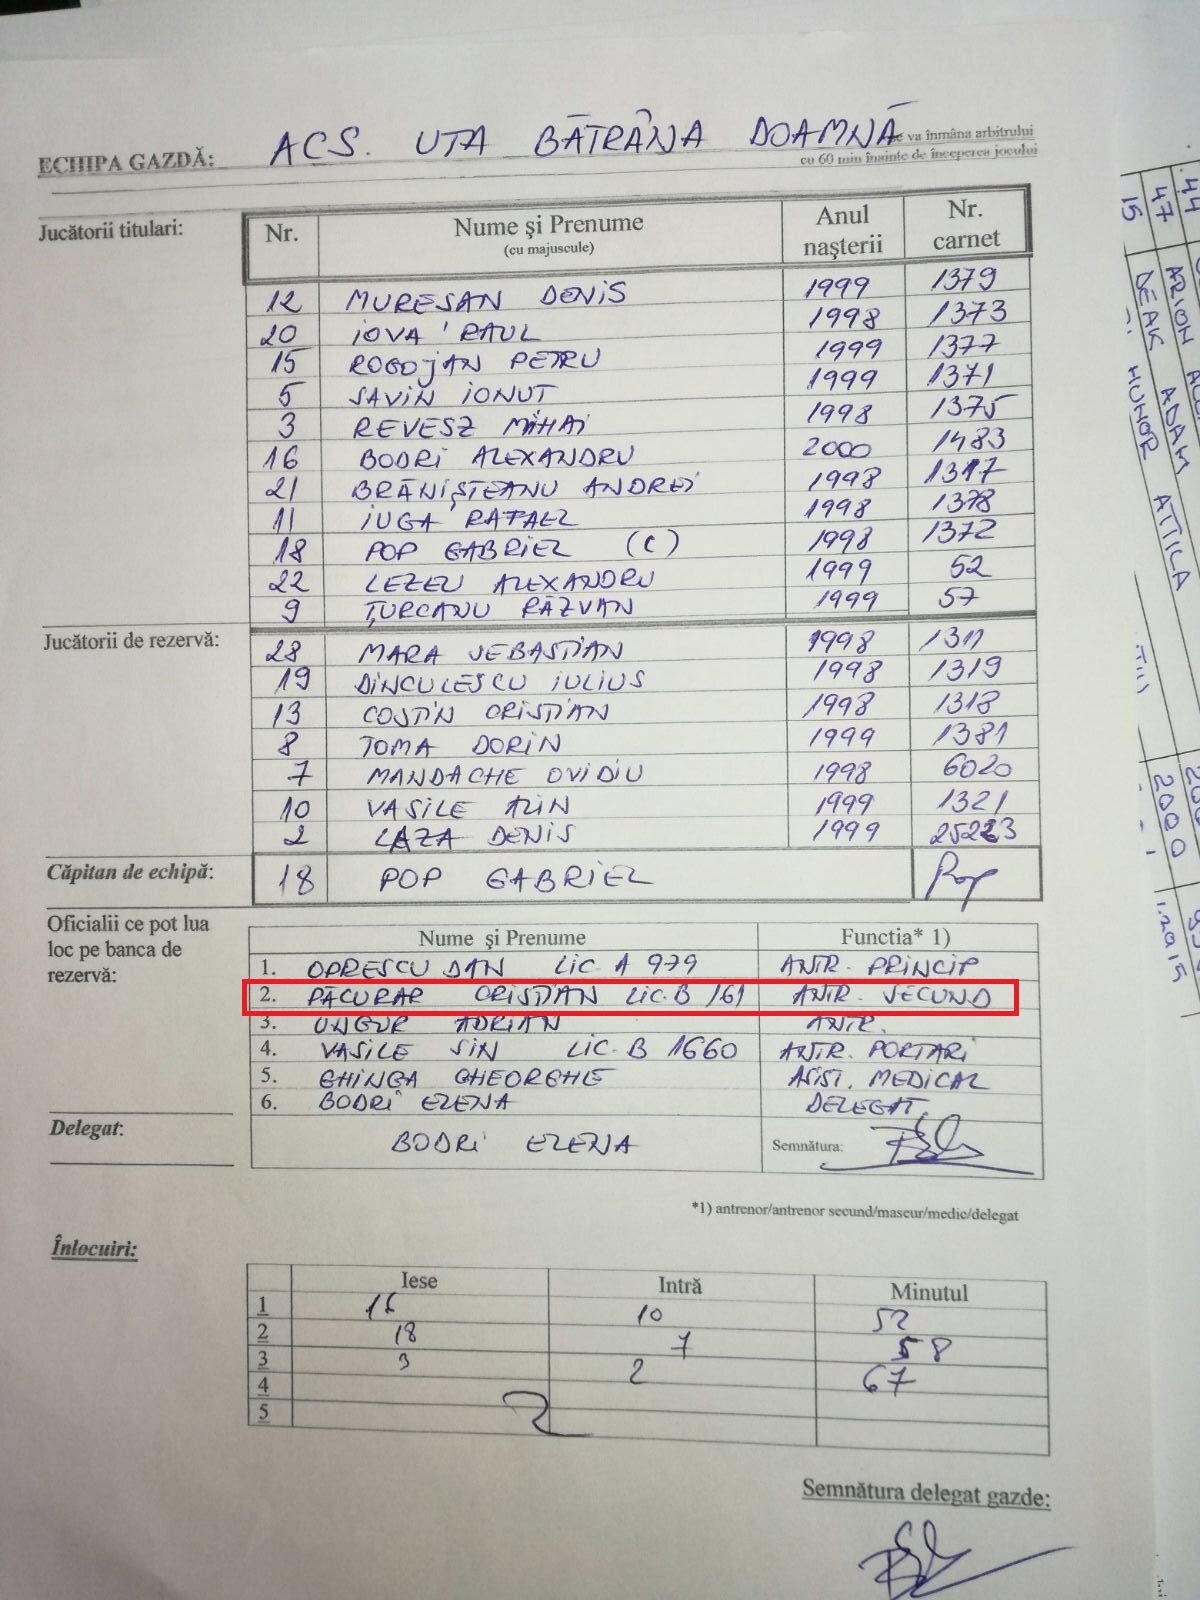 ECHIPA GAZDĂ: ACS. UTA BĂTRÂNA DOAMNĂ
se va înmâna arbitrului
cu 60 min înainte de începerea jocului
Jucătorii titulari: Nr. Nume şi Prenume (cu majuscule) Anul naşterii Nr. carnet
12 MURESAN DENIS 1999 1379
20 IOVA RAUL 1998 1373
15 ROGOJAN PETRU 1999 1377
5 SAVIN IONUT 1999 1371
3 REVESZ MIHAI 1998 1375
16 BODRI ALEXANDRU 2000 1483
21 BRĂNIŞTEANU ANDREI 1998 1317
11 IUGA RAFAEL 1998 1378
18 POP GABRIEL (C) 1998 1372
22 LEZEU ALEXANDRU 1999 52
9 ŢURCANU RĂZVAN 1999 57
Jucătorii de rezervă:
28 MARA SEBASTIAN 1998 1311
19 DINCULESCU IULIUS 1998 1319
13 COSTIN CRISTIAN 1998 1318
8 TOMA DORIN 1999 1381
7 MANDACHE OVIDIU 1998 6020
10 VASILE ALIN 1999 1321
2 LAZA DENIS 1999 25223
Căpitan de echipă: 18 POP GABRIEL Pop
Oficialii ce pot lua loc pe banca de rezervă: Nume şi Prenume Functia* 1)
1. OPRESCU DAN LIC. A 979 ANTR. PRINCIP
2. PĂCURAR CRISTIAN LIC. B 161 ANTR. SECUND
3. UNGUR ADRIAN ANTR.
4. VASILE SIN LIC. B 1660 ANTR. PORTARI
5. GHINGA GHEORGHE ASIST. MEDICAL
6. BODRI ELENA DELEGAT
Delegat: BODRI ELENA Semnătura:
*1) antrenor/antrenor secund/maseur/medic/delegat
Înlocuiri:
Iese Intră Minutul
1 16 10 52
2 18 7 58
3 3 2 67
4
5
Semnătura delegat gazde:
44
47 ARION ADAM
15 DEAK HUNOR ATTICA
2000